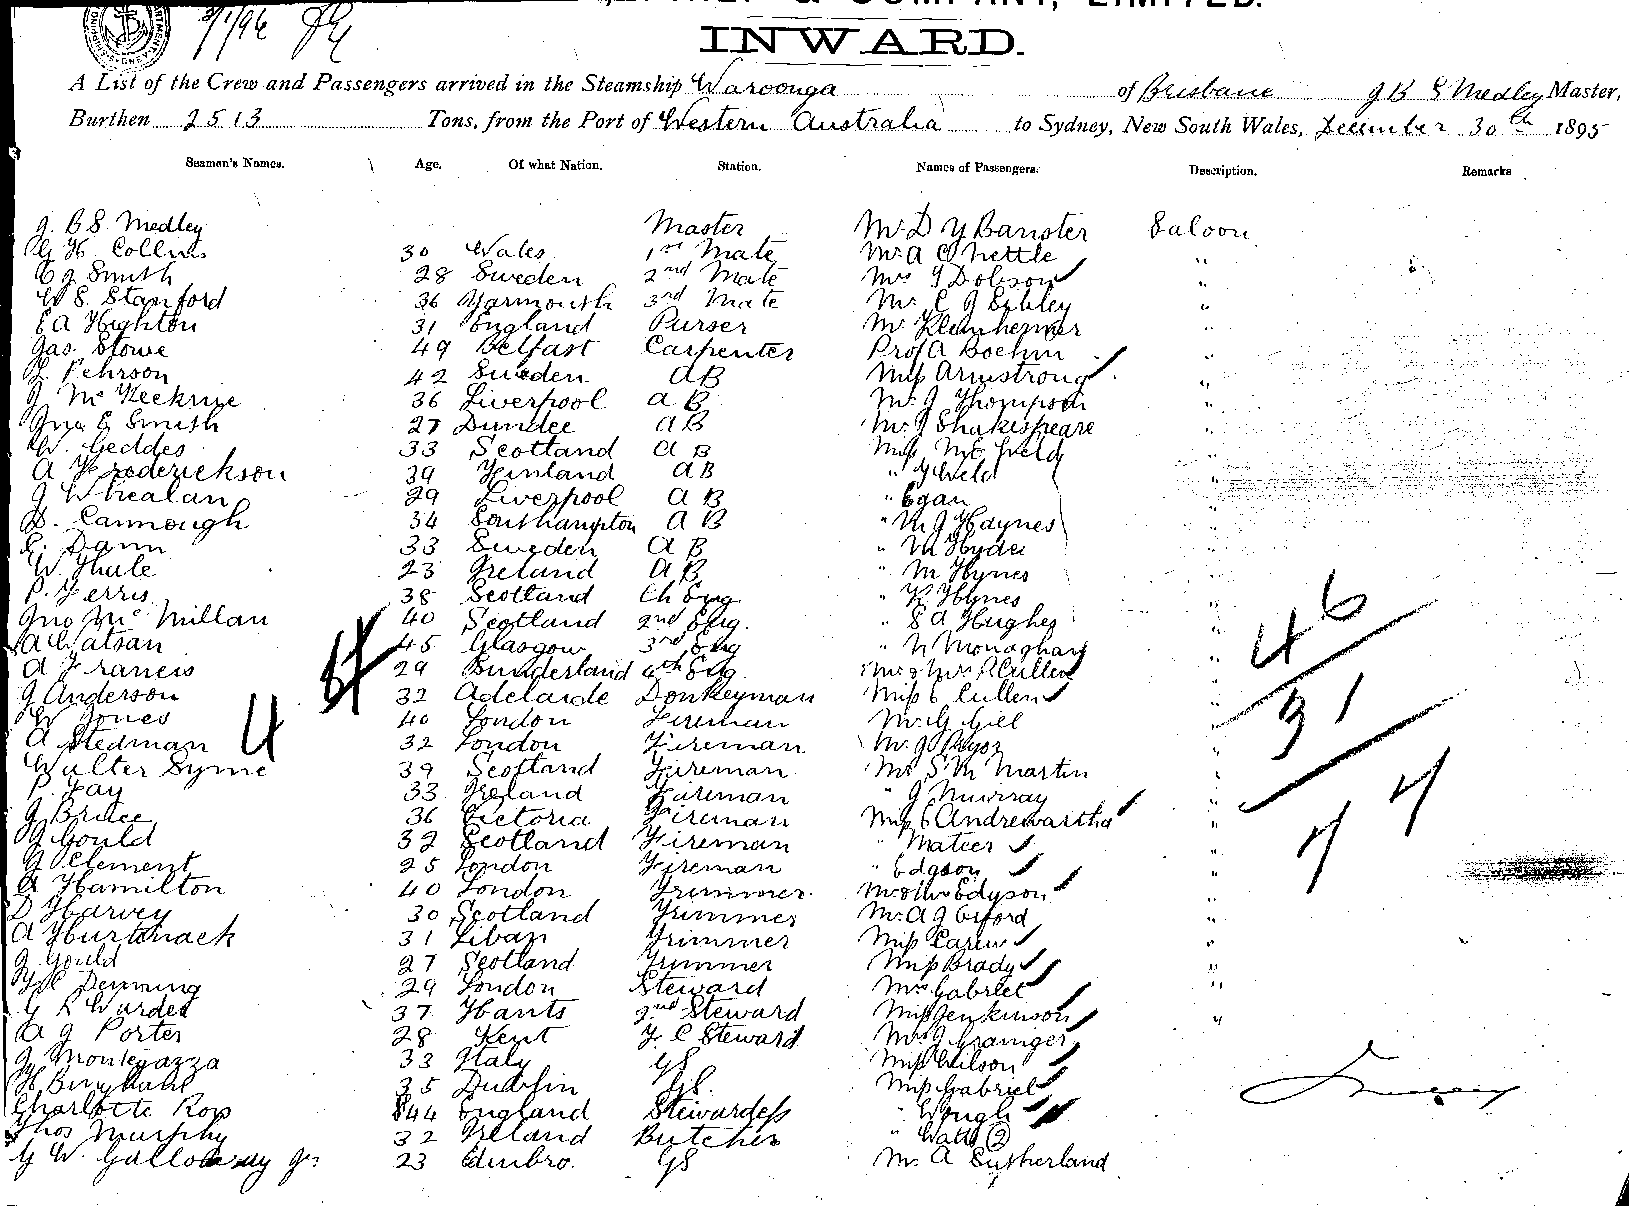 & COMPANY, LIMITED.
3/1/96
INWARD.
A List of the Crew and Passengers arrived in the Steamship Waroonga of Brisbane J B S Medley Master,
Burthen 2513 Tons, from the Port of Western Australia to Sydney, New South Wales, December 30th 1895
Seaman's Names. Age. Of what Nation. Station. Names of Passengers. Description. Remarks
J. B S. Medley Master Mr D Y Banster Saloon
G H. Collins 30 Wales 1st Mate Mr A C Nettle "
C J Smith 28 Sweden 2nd Mate Mrs Dobson "
W S. Stanford 36 Yarmouth 3rd Mate Mr E J "
E A Highton 31 England Purser Mr "
Jas Stowe 49 Belfast Carpenter Prof A Boehm "
Pehrson 42 Sweden AB Miss Armstrong "
J Mc 36 Liverpool AB Mr J Thompson "
Jno E Smith 27 Dundee AB Mr J Shakespeare "
W. Geddes 33 Scotland AB Miss Field "
A Frederickson 39 Finland AB " Field "
J Whealan 29 Liverpool AB " Egan "
D. Cannough 34 Southampton AB " M J Haynes "
E. Dann 33 Sweden AB " M Hyde "
W. Thule 23 Ireland AB " M Hynes "
P. Ferris 38 Scotland Ch Eng " K Hynes "
Jno Mc Millan 40 Scotland 2nd Eng. " S A Hughes "
A Watsan 45 Glasgow 3rd Eng " N Monaghan "
A Francis 29 Sunderland 4th Eng. Mr & Mrs Cullen "
J Anderson 32 Adelaide Donkeyman Miss Cullen "
W Jones 40 London Fireman Mr G Gill "
A Stedman 32 London Fireman Mr J Pryor "
Walter Syme 39 Scotland Fireman Mr S. M Martin "
P. Fay 33 Ireland Fireman " J Murray "
J Bruce 36 Victoria Fireman Miss Andrewartha "
J Gould 32 Scotland Fireman " Mateer "
J Clement 25 London Fireman " Edgson "
A Hamilton 40 London Trimmer Mr & Mrs Edgson "
D Harvey 30 Scotland Trimmer Mr A J "
A Hurtznack 31 Liban Trimmer Miss Carew "
J Gould 27 Scotland Trimmer Miss Brady "
Denning 29 London Steward Mrs Gabriel "
G R Warded 37 Hants 2nd Steward Miss Jenkinson "
A J Porter 28 Kent F. C Steward Mr J Grainger
J Montegazza 33 Italy GS Miss Wilson
H Bingham 35 Dublin GS. Miss Gabriel
Charlotte Ross 44 England Stewardess " Wough
Thos Murphy 32 Ireland Butcher " Watt 2
G W. Galloway Jr. 23 Edinbro. GS Mr A Sutherland
46
31
77
4